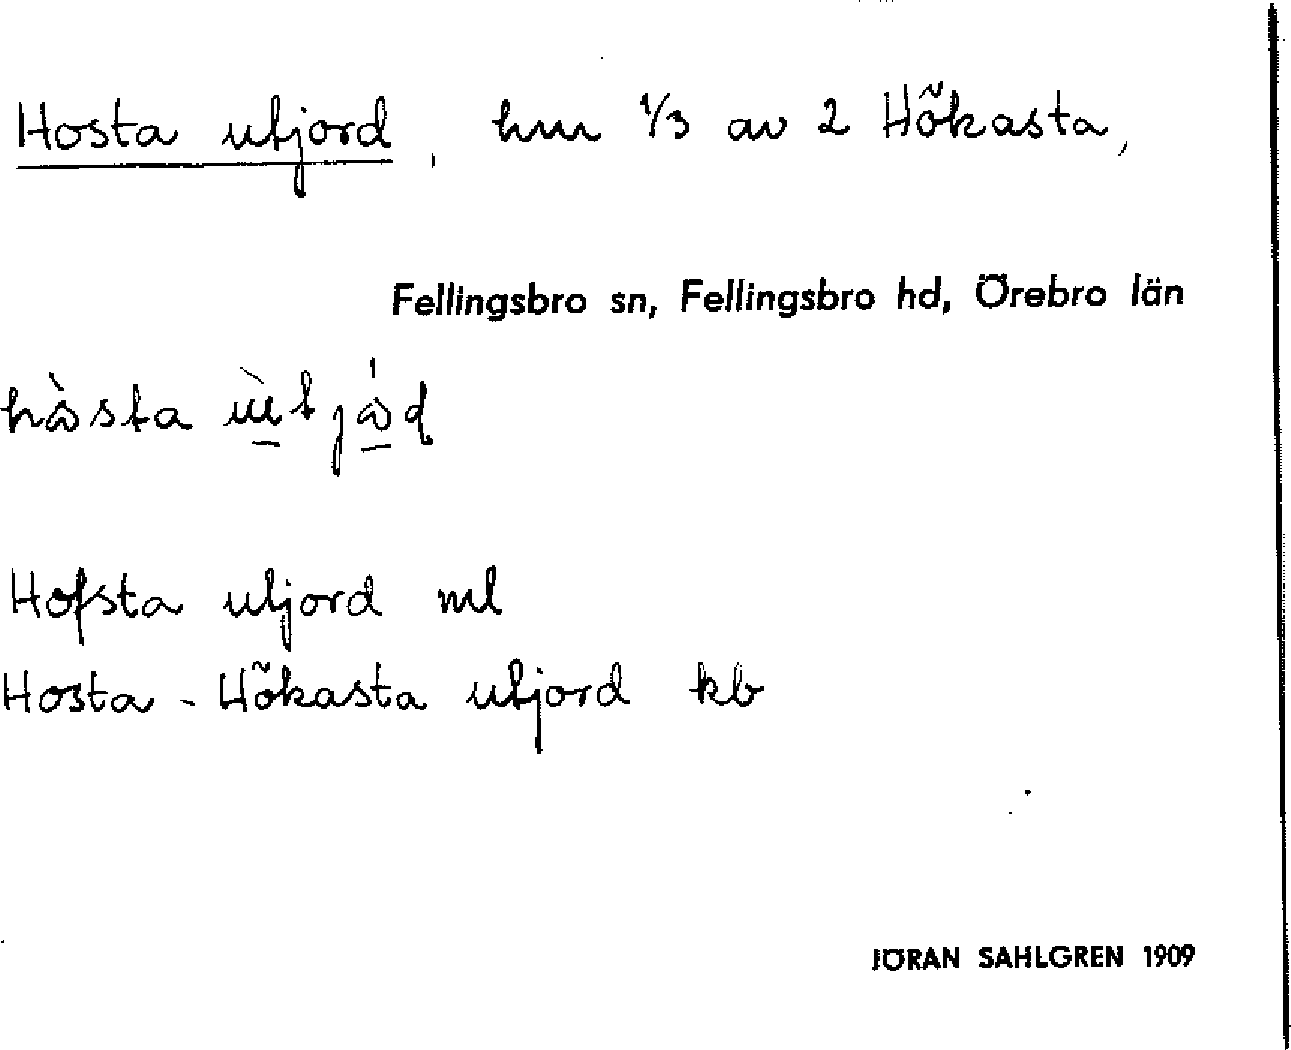 Hosta utjord, hm 1/3 av 2 Hökasta,
Fellingsbro sn, Fellingsbro hd, Örebro län
Hofsta utjord ml
Hosta - Hökasta utjord kb
JÖRAN SAHLGREN 1909